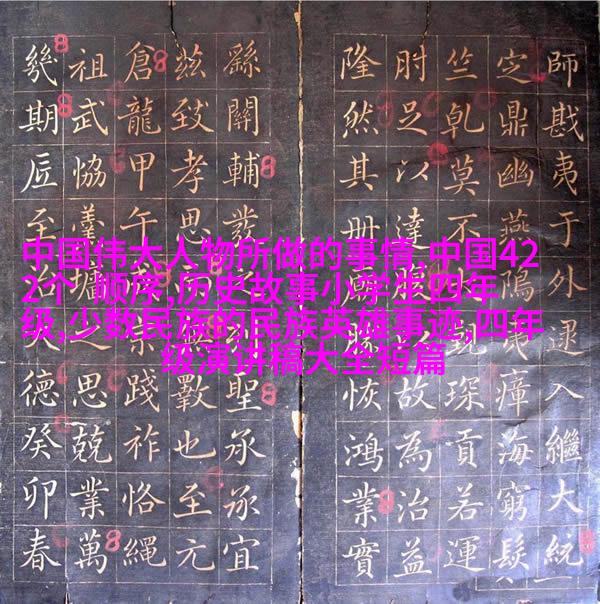 中国伟大人物所做的事情,中国42
2个 顺序,历史故事小学生四年
级,少数民族的民族英雄事迹,四年
级演讲稿大全短篇
師戡夷于外逮入繼大統
定鼎幽燕夷瘴海窮髮
竺乹莫不琛貢若運
肘足以達服故為治益
隆然其冊恢鴻業實
繇關輔發聖承承宜
茲致孝思斁也至元
倉龍甲午踐祚恪繩
祖武恊羹墻之思兢業萬
幾期匠至治德癸卯春